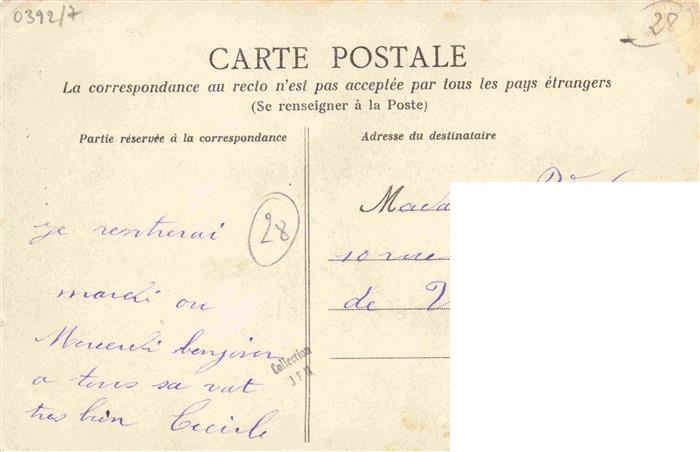 0392/7
28
CARTE POSTALE
La correspondance au recto n'est pas acceptée par tous les pays étrangers
(Se renseigner à la Poste)
Partie réservée à la correspondance
Adresse du destinataire
je rentrerai
28
mardi ou
Mercredi bonjour
a tous sa vat
tres bien Cecile
Mada
10 rue
de V
Collection
J F M